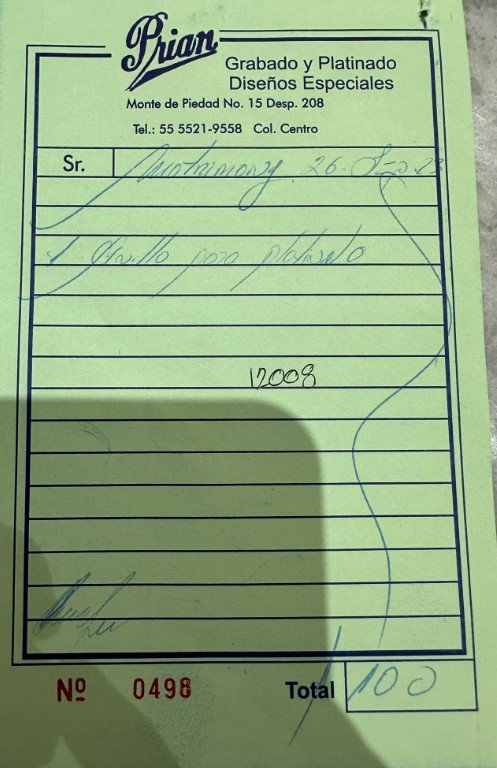 Prian
Grabado y Platinado
Diseños Especiales
Monte de Piedad No. 15 Desp. 208
Tel.: 55 5521-9558 Col. Centro
Sr. Matrimony 26
1 Anillo para platinado
12008
Nº 0498 Total 100